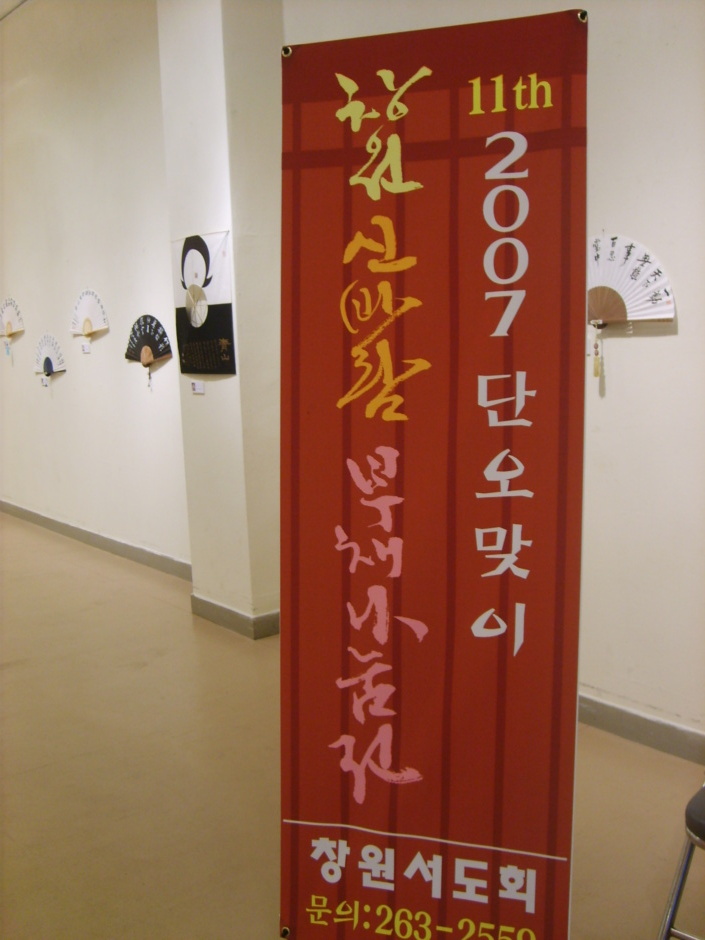 11th
2007 단오맞이
창원 신바람 부채나눔전
창원서도회
문의:263-2559